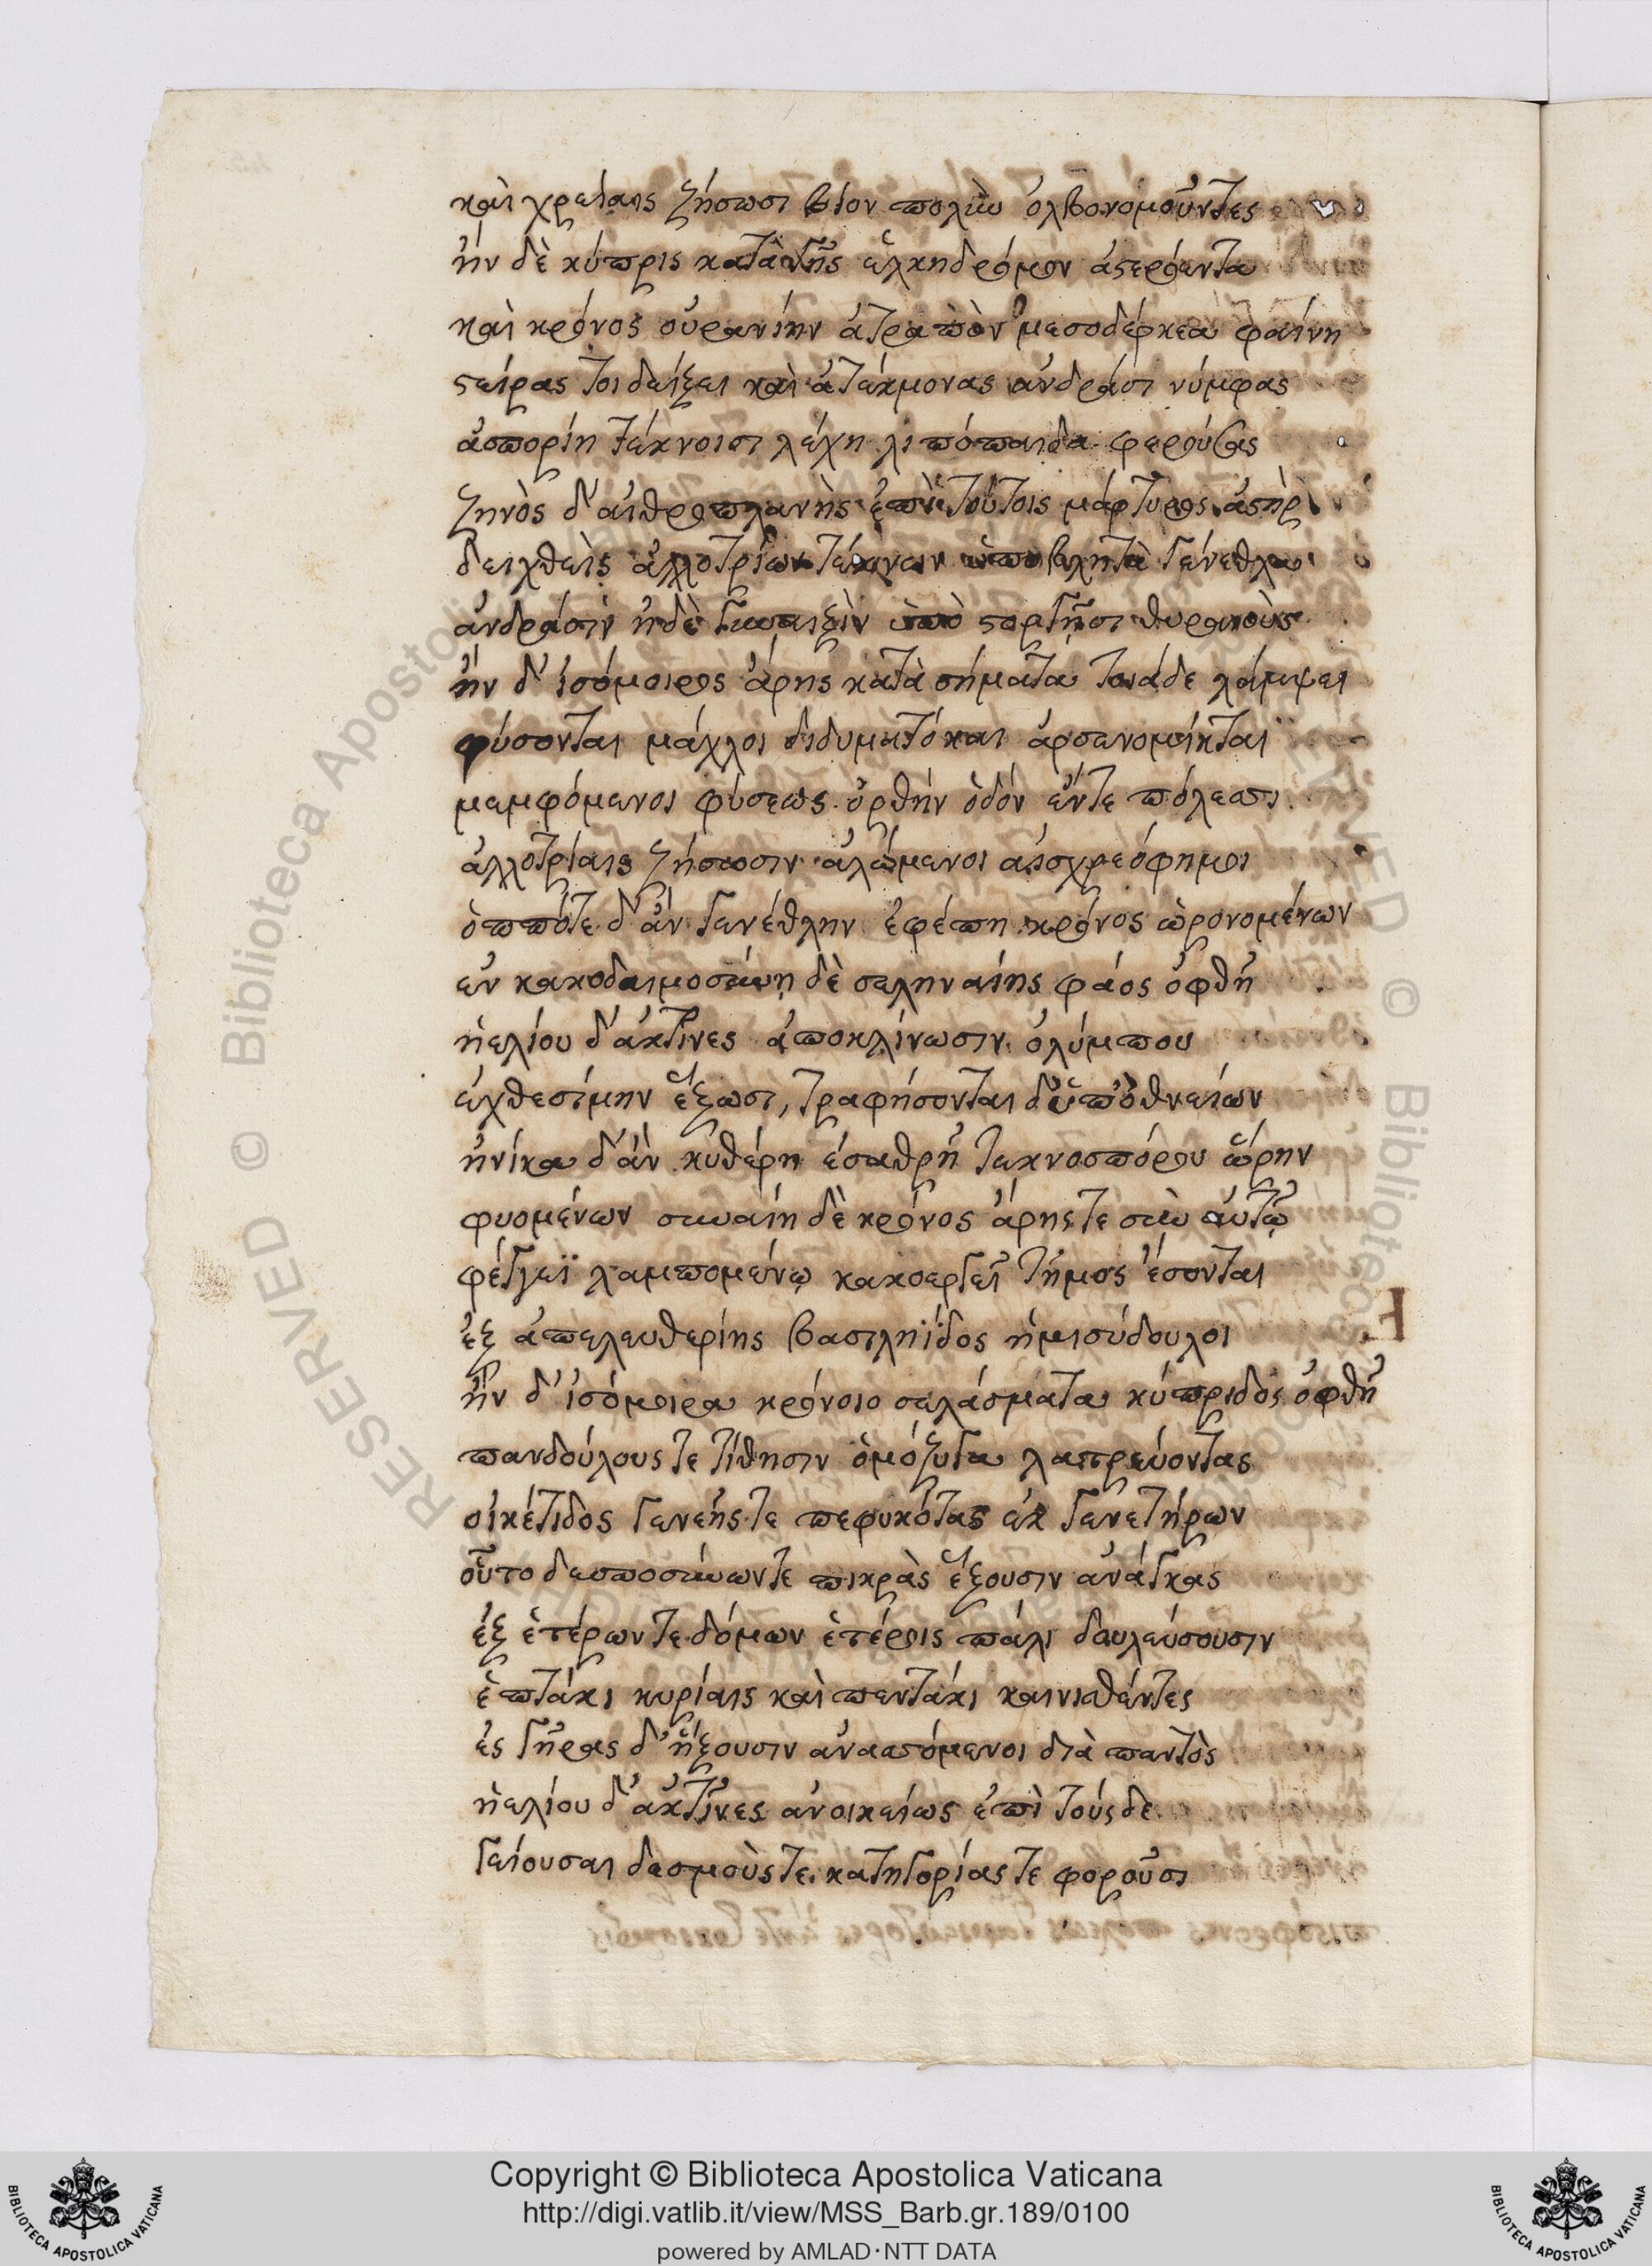 καὶ χρείαις ζήσωσι βίον πολὺν ὀλβονομοῦντες
ἢν δὲ κύπρις κατάντης ἕλκη δρόμον ἀστερόεντα
καὶ κρόνος οὐρανίην ἀτραπὸν μεσοδέρκεα φαίνη
στείρας τοι δείξει καὶ ἀτέκμονας ἀνδράσι νύμφας
ἀσπορίη τέκνοισι λέχη λιπόπαιδα φερούσας
ζηνὸς δ' αἰθροπλανὴς ἐπὶ τούτοις μάρτυρος ἀστὴρ
δειχθεὶς ἀλλοτρίων τέκνων ὑποβλητὰ γένεθλα
ἀνδράσιν ἠδὲ γυναιξὶν ὑπὸ στοργῆσι θυραιοὺς
ἢν δ' ἰσόμοιρος ἄρης κατὰ σήματα τοιάδε λάμψει
φύσονται μάχλοι διδυματόκαι ἀρσενομίκται
μεμφόμενοι φύσεως ὀρθὴν ὁδόν ἔντε πόλεσσι
ἀλλοτρίαις ζήσωσιν ἀλώμενοι αἰσχρεόφημοι
ὁππότε δ' ἂν γενέθλην ἐφέπη κρόνος ὡρονομένων
ἐν κακοδαιμοσύνη δὲ σεληναίης φάος ὀφθῆ
ἠελίου δ' ἀκτῖνες ἀποκλίνωσιν ὀλύμπου
ἐχθεσίμην ἕξωσι, τραφήσονται δ' ὑπ' ὀθνείων
ἡνίκα δ' ἂν κυθέρη ἐσαθρῆ τεκνοσπόρου ὥρην
φυομένων συναίη δὲ κρόνος ἄρης τε σὺν αὐτῷ
φέγγεϊ λαμπομένῳ κακοεργεῖ τῆμος ἔσονται
ἐξ ἀπελευθερίης βασιληΐδος ἡμισύδουλοι
F
ἢν δ' ἰσόμοιρα κρόνοιο σελάσματα κύπριδος ὀφθῆ
πανδούλους τε τίθησιν ὁμόζυγα λατρεύοντας
οἰκέτιδος γενεῆς τε πεφυκότας ἐκ γενετήρων
οὗτο δεσποσύνων τε πικρὰς ἕξουσιν ἀνάγκας
ἐξ ἑτέρων τε δόμων ἑτέροις πάλι δουλεύσουσιν
ἑπτάκι κυρίαις καὶ πεντάκι καινισθέντες
ἐς γῆρας δ' ἥξουσιν ἀνασσόμενοι διὰ παντὸς
ἠελίου δ' ἀκτῖνες ἀνοικείως ἐπὶ τούσδε
γείουσαι δεσμούς τε κατηγορίας τε φοροῦσι
Copyright © Biblioteca Apostolica Vaticana
http://digi.vatlib.it/view/MSS_Barb.gr.189/0100
powered by AMLAD·NTT DATA